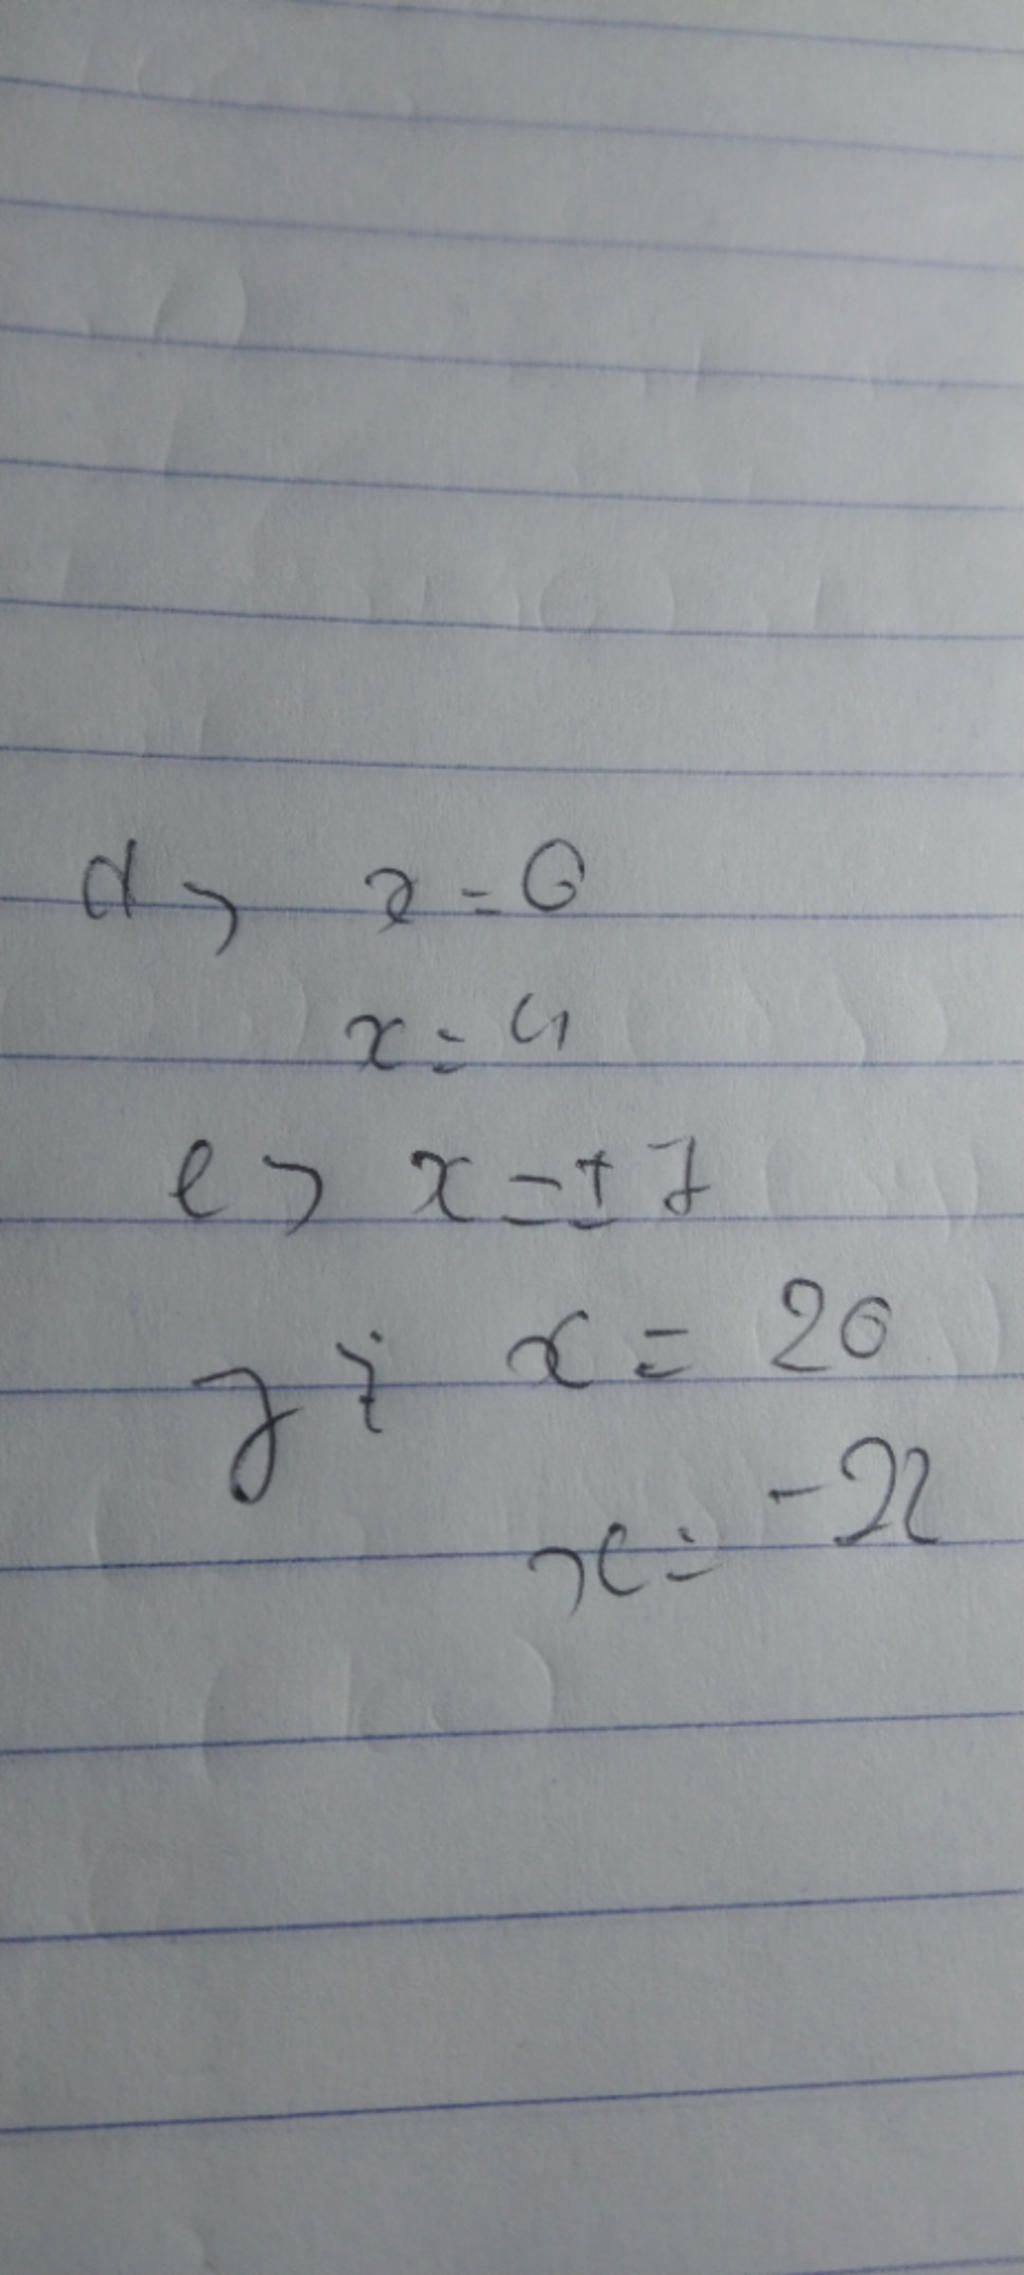 d> x = 0
x = 4
e> x = ± 7
g> x = 20
x = -22